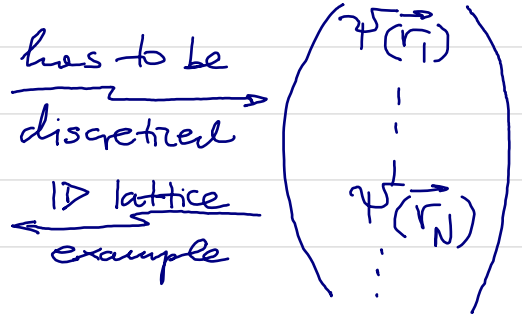 has to be
discretized
1D lattice
example
ψ(r⃗₁)
⋮
ψ(r⃗_N)
⋮